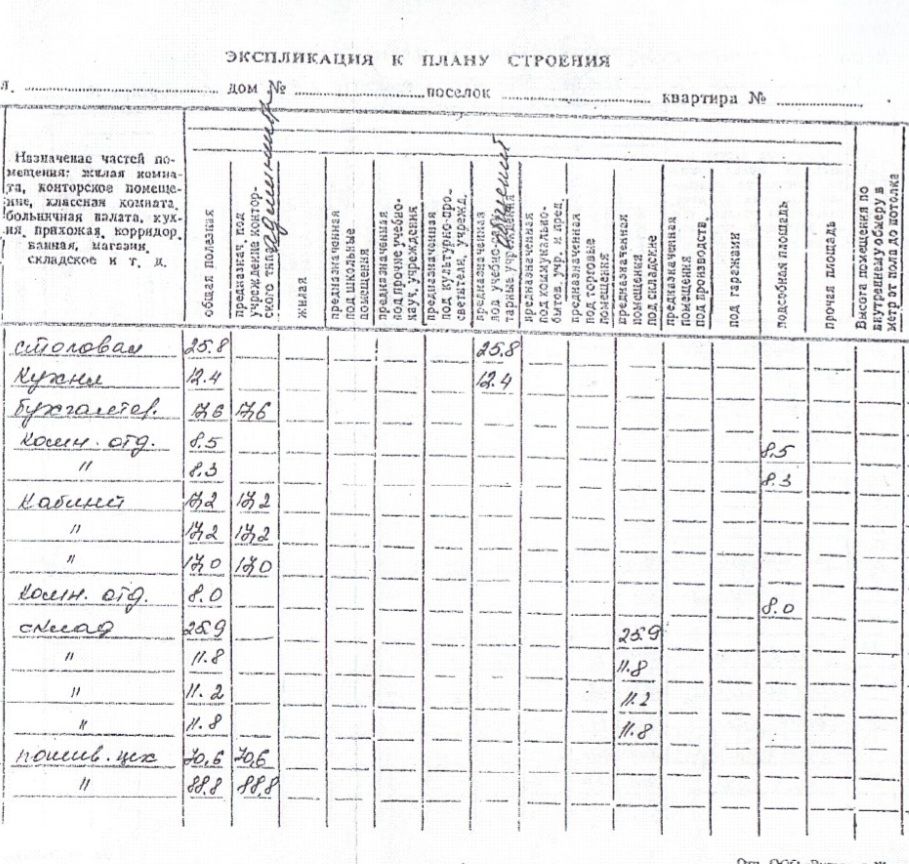 ЭКСПЛИКАЦИЯ К ПЛАНУ СТРОЕНИЯ
я. дом № поселок квартира №
Назначение частей по-
мещения: жилая комна-
та, конторское помеще-
ние, классная комната,
больничная палата, кух-
ня, прихожая, корридор,
ванная, магазин,
складское и т. д.
общая полезная
предназнач. под
учреждение контор-
ского
жилая
предназначенная
под школьные
помещения
предназначенная
под прочие учебно-
науч. учреждения
предназначенная
под культурно-про-
светители. учрежд.
предназначенная
предназначенная
под коммунально-
бытов. учр. и пред.
предназначенная
под торговые
помещения
предназначенная
помещений
под складские
предназначенная
помещения
под производств.
под гаражами
подсобная площадь
прочая площадь
Высота помещения по
внутреннему обмеру в
метр от пола до потолка
столовая 25.8 25.8
кухня 12.4 12.4
бухгалтер. 17,6 17,6
комн. отд. 8.5 8.5
" 8.3 8.3
кабинет 17,2 17,2
" 17,2 17,2
" 17,0 17,0
комн. отд. 8.0 8.0
склад 25.9 25.9
" 11.8 11.8
" 11.2 11.2
" 11.8 11.8
пошив. цех 70,6 70,6
" 88,8 88,8